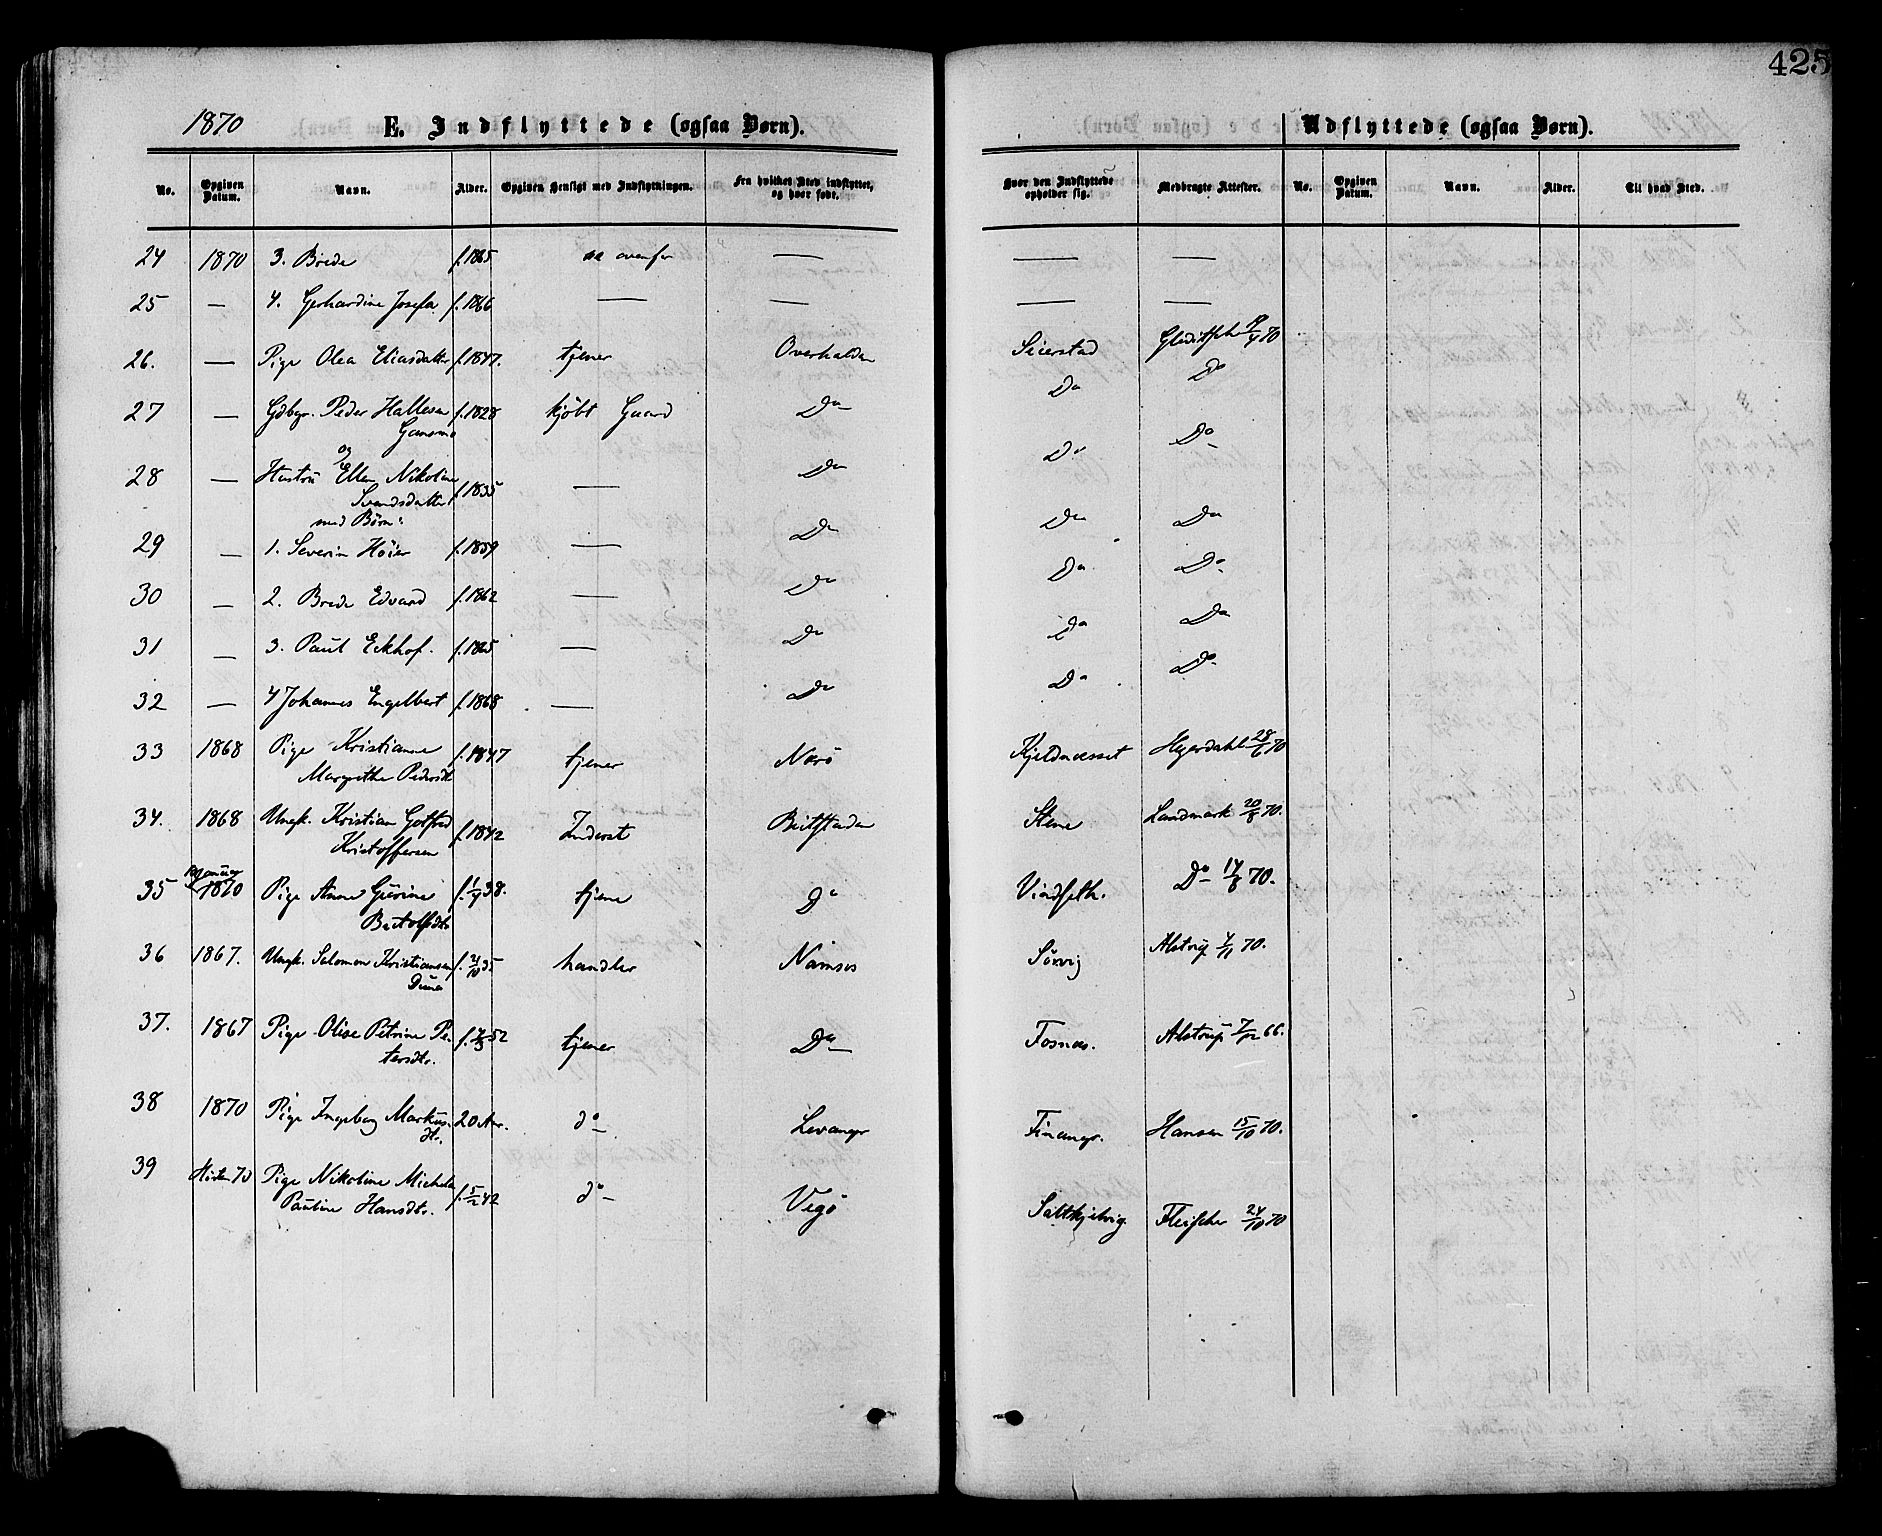 425
1870 E. Indflyttede (ogsaa Børn). Udflyttede (ogsaa Børn).
No. Opgiven Datum. Navn. Alder. Opgiven Hensigt med Indflytningen. Fra hvilket Sted indflyttet, og hvor født. Hvor den Indflyttede opholder sig. Medbragte Attester. No. Opgiven Datum. Navn. Alder. Til hvad Sted.
24 1870 3. Brede f. 1865 ovenfor — — —
25 — 4. Gerhardine Josefa f. 1866 — — — —
26. — Pige Olea Eliasdatter f. 1847. tjener Overhalden Seierstad Gleditsch 70
27 — Gdbgr. Peder Hallesen f. 1828 kjøbt Gaard Do Do Do
Gansmo
og
28 — Hustru Ellen Nikoline f. 1835 — Do Do Do
Svendsdatter
med Børn:
29 — 1. Severin Höier f. 1859 — Do Do Do
30 — 2. Brede Edvard f. 1862 — Do Do Do
31 — 3. Paul Eckhof. f. 1865 — Do Do Do
32 — 4 Johannes Engelbert f. 1868 — Do Do Do
33 1868 Pige Kristianne f. 1847 tjener Nærö Kjeldnæsset Heyerdahl 28/6 70
Margrethe Pedersdt
34. 1868 Ungk. Kristian Gotfred f. 1842 Inderst Beitstaden Stene Landmark 20/8 70.
Kristoffersen
35 1870 Pige Anne Gurine f. 1/9 38. tjene Do Vindseth. Do 14/8 70.
Bertolfsdtr
36 1867. Ungk. Salomon Kristiansen f. 21/10 35 handler Namsos Sörvig Alstrup 4/11 70.
Duna
37. 1867 Pige Olise Petrine Pe- f. 52 tjener Do Fosnæs. Alstrup 7/12 66.
tersdtr.
38 1870 Pige Ingeborg Markus- 20 Aar. do Levanger Finanger. Hansen 15/10 70.
dtr.
39 Høsten 70 Pige Nikoline Michela f. 5/2 42 do Vegö Saltkjelvig Fleischer 24/10 70
Pauline Hansdtr.